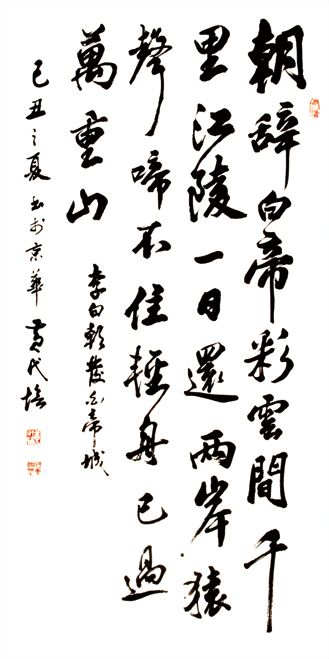 朝辭白帝彩雲間千
里江陵一日還兩岸猿
聲啼不住輕舟已過
萬重山
李白朝發白帝城
己丑之夏書於京華黃代培